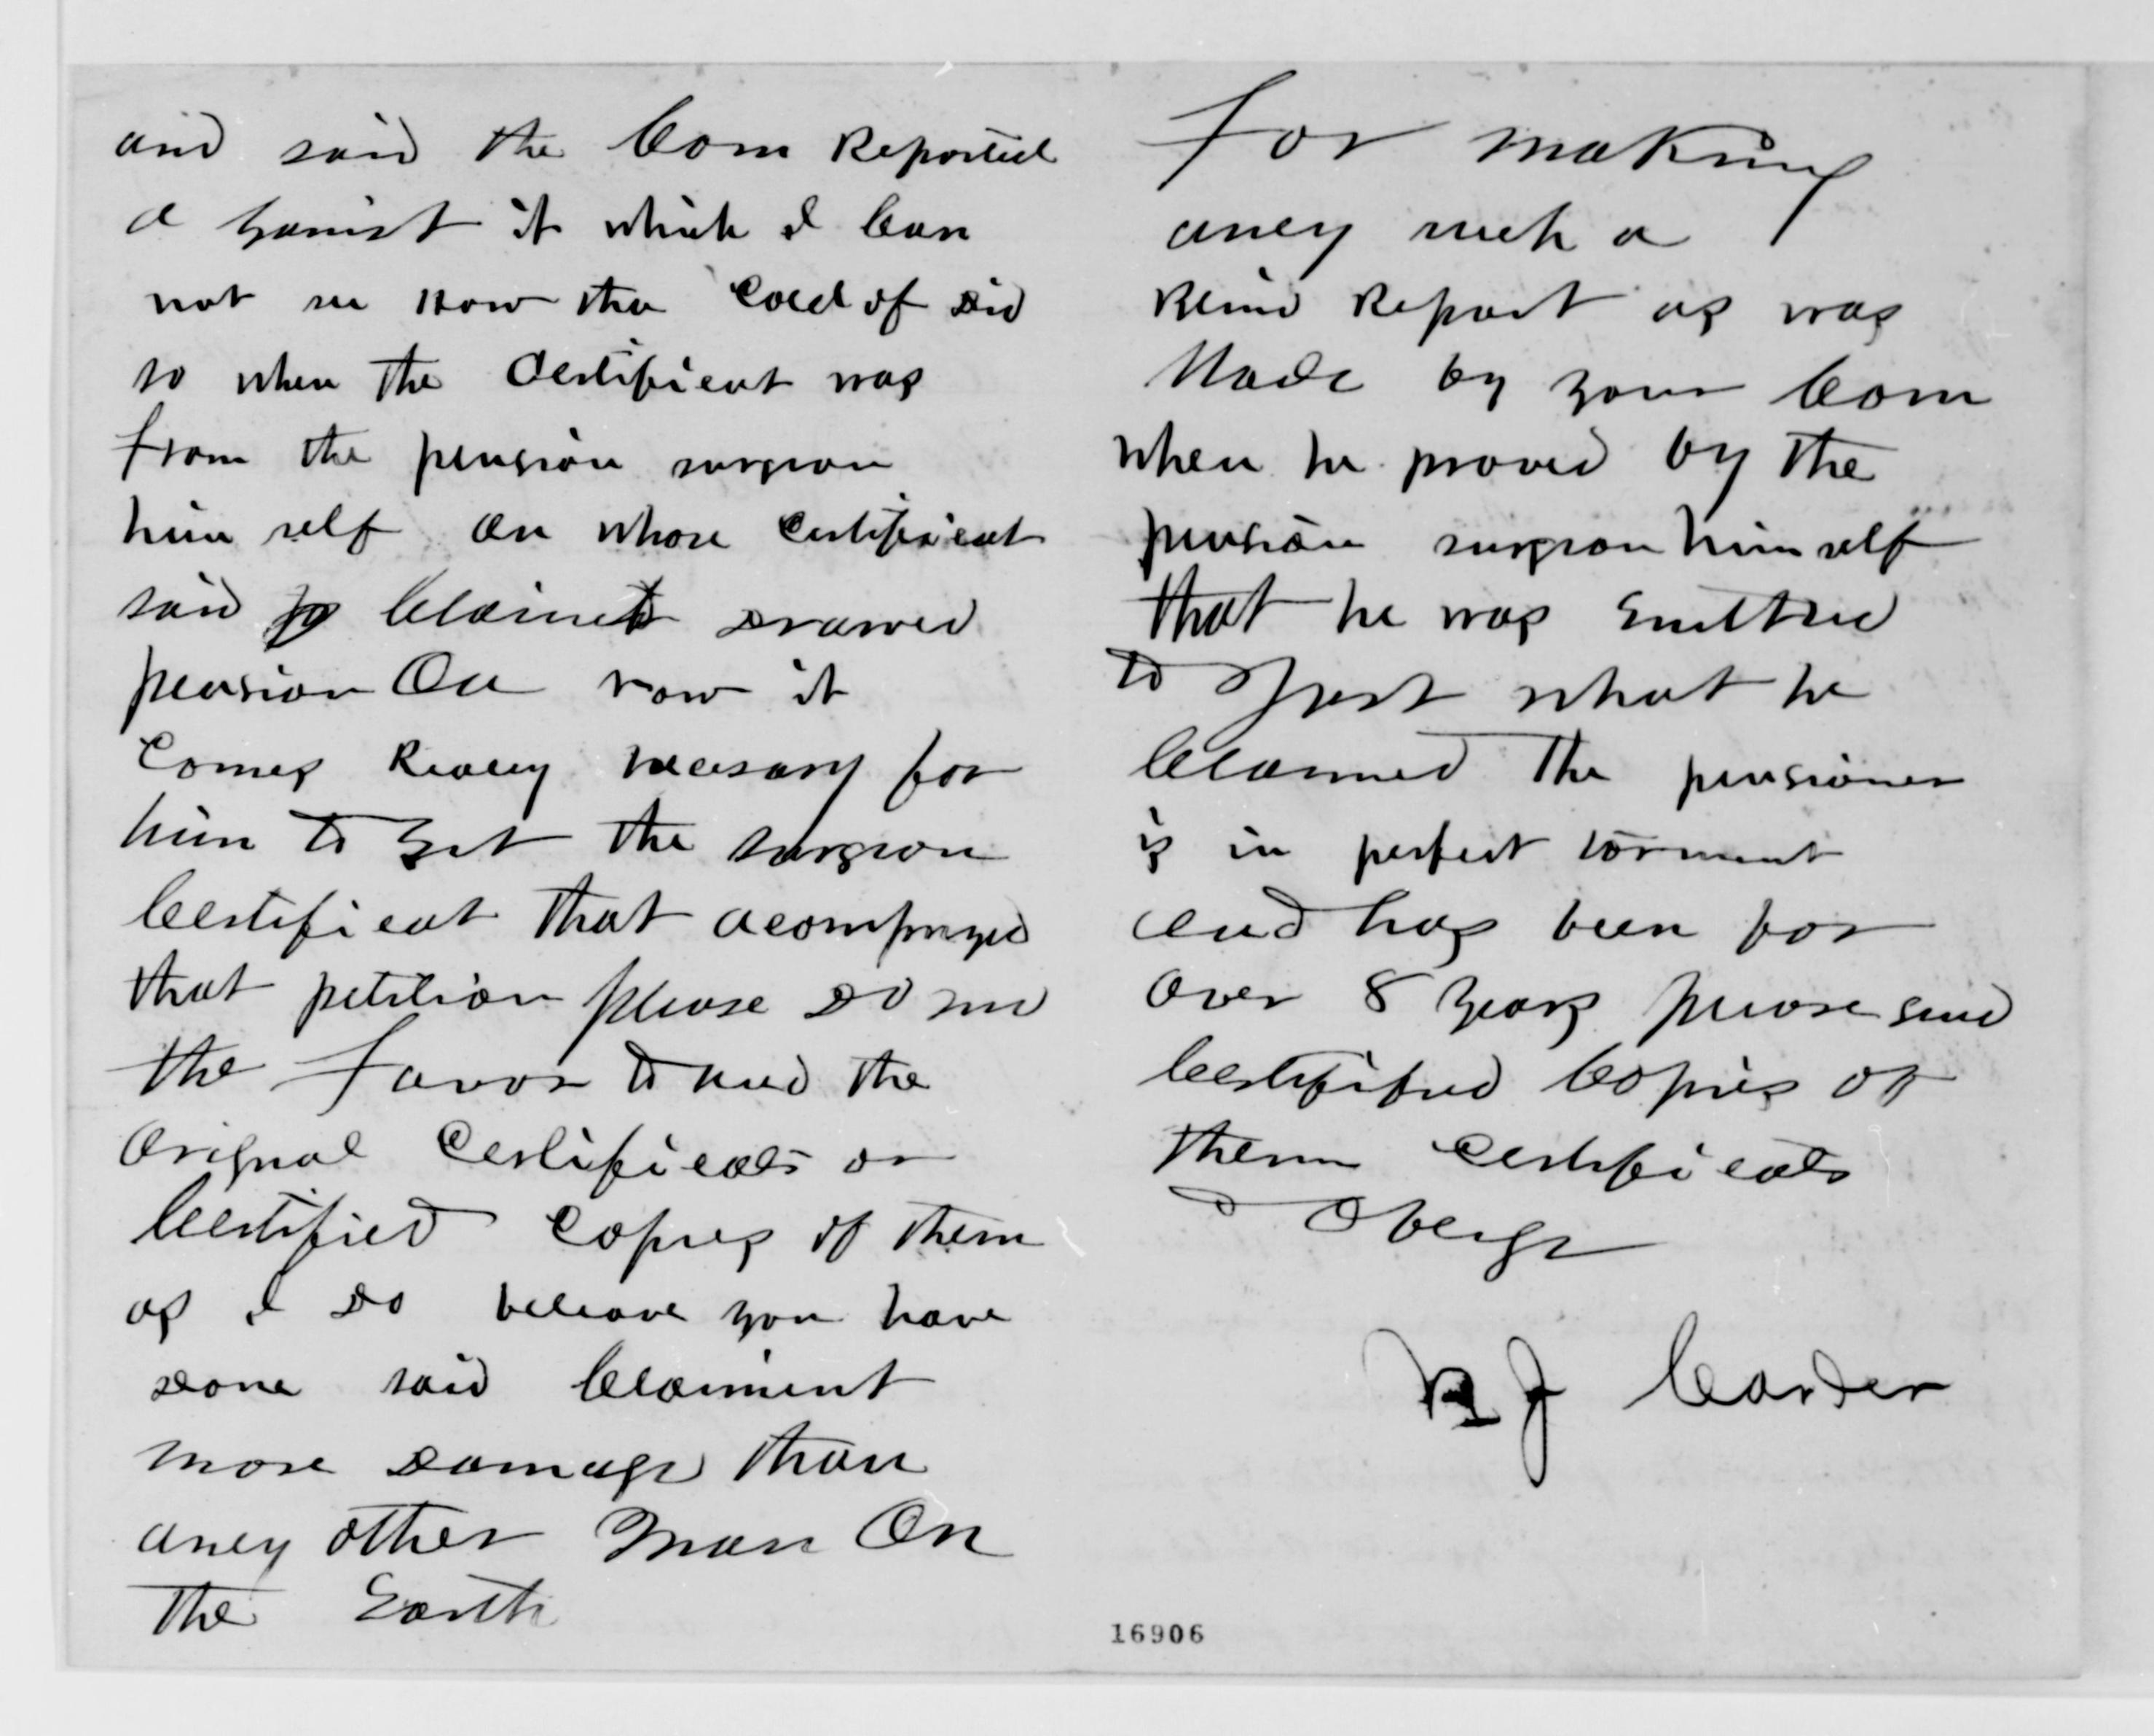 and said the Com Reported
a gainst it which I Can
not see How the did
so when the Certificeat was
from the pension surgeon
him self on whose Certificeat
said Claiment drawed
pension On now it
Comes Realey necesary for
him to get the surgeon
Certificeat that acompanyed
that petition please do me
the favor to send the
Orignal Certificeats or
Certified Copies of them
as I do beleave you have
done said Claiment
more damage than
aney other man On
the Earth
For making
aney such a
Kind Report as was
Made by your Com
when he proved by the
pension surgeon himself
that he was Entitled
to Just what he
Claimed The pensioner
is in perfect torment
and has been for
over 8 years please send
Certifified Copies of
them Certificeats
& Oblige
R J Carder
16906